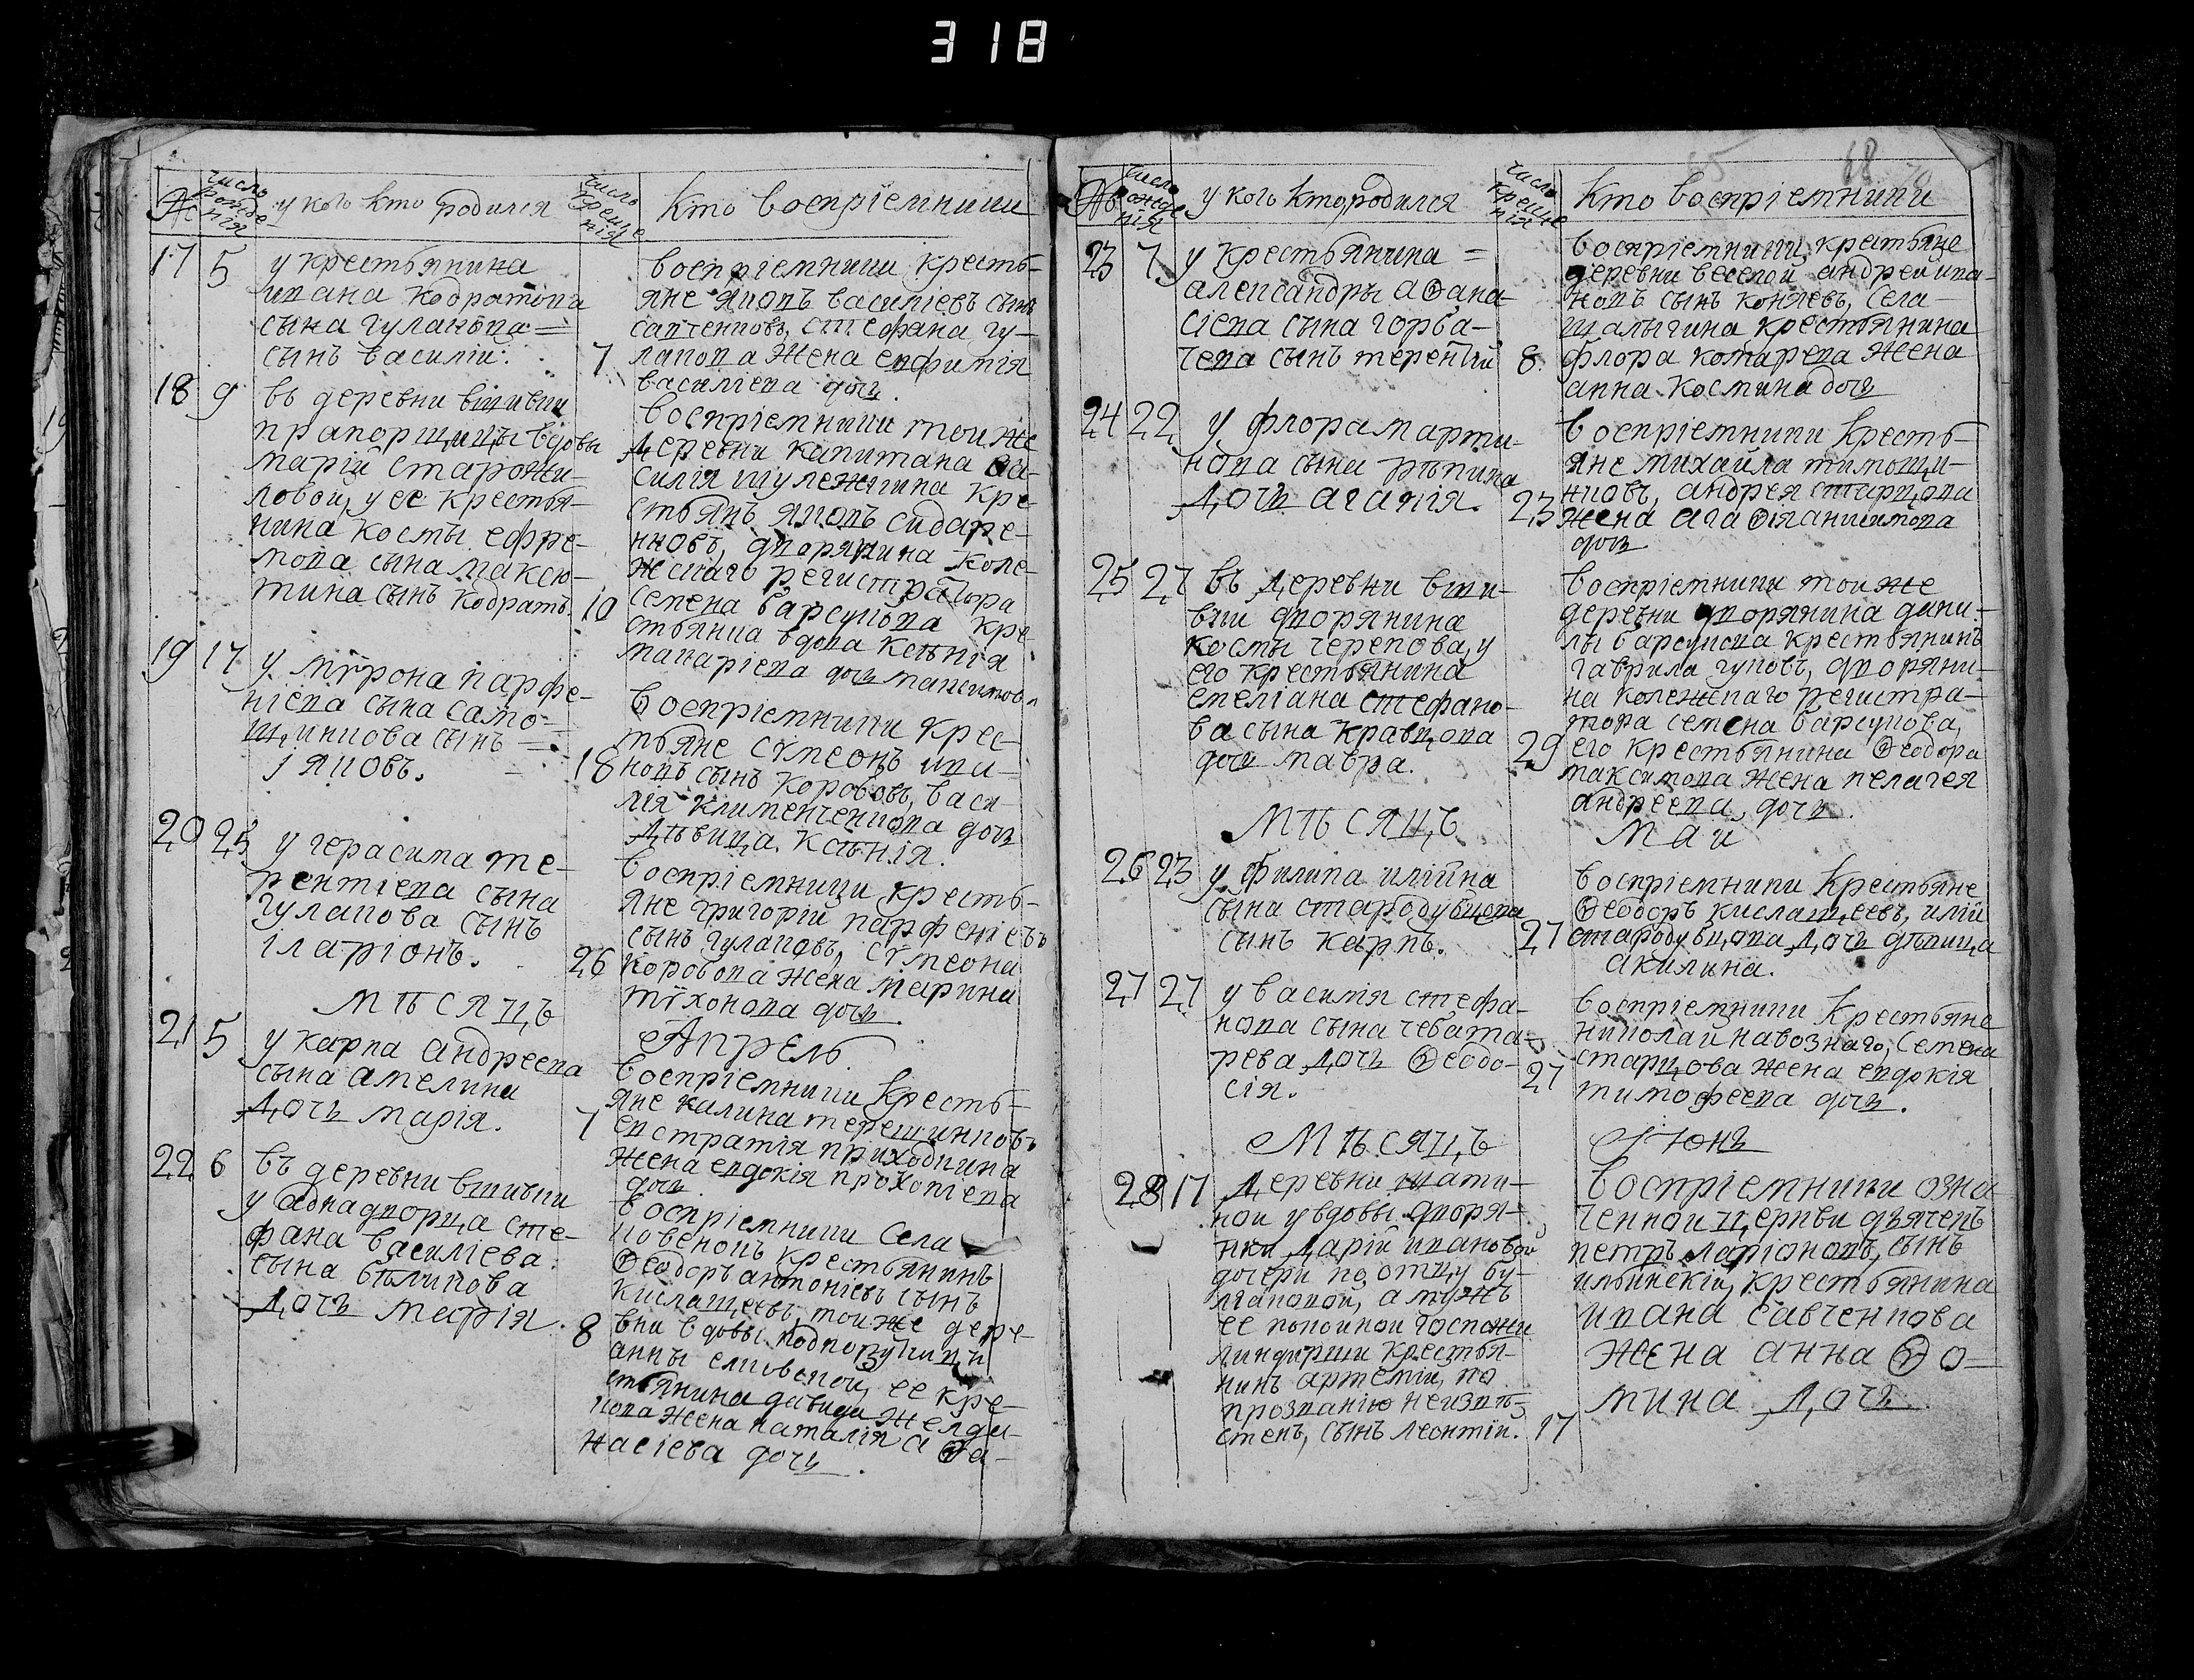 318
№
число рожде-
нія
у кого кто родился
число креще
нія
Кто воспріемники
17 5 у крестьянина
ивана кодратова
сына гулакова =
сынъ василій. 7
воспріемники кресть-
яне яковъ василіевъ сынъ
савченковъ, стефана гу-
лакова жена евфимія
василіева дочь.
18 9 въ деревни вшивки
прапорщицы вдовы
маріи старожи-
ловой, у ее крестья-
нина косты ефре-
мова сына максю-
тина сынъ кодратъ. 10
воспріемники тоиже
деревни капитана ва-
силія шулежкина кре-
стьянъ яковъ сидаре-
нковъ, дворянина коле-
жскаго регистратора
семена барсукова кре-
стьянка вдова ксѣнія
макаріева дочь максимов.
19 17 у мѵрона парфе-
ніева сына само-
щинкова сынъ =
іяковъ. 18
воспріемники крес-
тьяне сѵмеонъ ива-
новъ сынъ коробовъ, васи-
лія клименченкова дочь
дѣвица ксѣнія.
20 25 у герасима те-
рентіева сына
гулакова сынъ
іларіонъ. 26
воспріемники кресть-
яне григорій парфеніевъ
сынъ гулаковъ, сѵмеона
коробова жена марина
тѵхонова дочь.
мѣсяцъ Апрель.
21 5 у карпа андреева
сына амелина
дочь марія. 7
воспріемники кресть-
яне калина терешинковъ
евстратія приходкина
жена евдокія прокопіева
дочь.
22 6 въ деревни вшивки
у аднадворца сте-
фана василіева
сына бѣликова
дочь марія. 8
воспріемники села
ѳеодоръ антоніевъ сынъ
кислащеевъ, тоиже дере-
вни вдовы подпоручицы
анны ее кре-
стьянина давида желда-
кова жена наталія аѳа-
насіева дочь.
68
№
число рожде
нія
у кого кто родился
число креще
нія
Кто воспріемники
23 7 у крестьянина =
александры аѳана-
сіева сына горба-
чева сынъ терентій 8.
воспріемники крестьяне
деревни веселой андрей ива-
новъ сынъ коняевъ, села
шалыгина крестьянина
флора комарева жена
анна космина дочь
24 22 у флора марти-
нова сына рѣпина
дочь агапія. 23
воспріемники кресть-
яне михайла тимоши-
нковъ, андрея старцова
жена агаѳія анисимова
дочь
25 27 въ деревни вши-
вки дворянина
косты черепова, у
его крестьянина
емеліана стефано-
ва сына кравцова
дочь мавра. 29
воспріемники тоиже
деревни дворянина дани-
лы барсукова крестьянинъ
гаврила гуковъ, дворяни-
на колежскаго регистра-
тора семена барсукова,
его крестьянина ѳеодора
максимова жена пелагея
андреева дочь.
мѣсяцъ май
26 23 у филипа илійна
сына стародубцева
сынъ карпъ. 27
воспріемники крестьяне
ѳеодоръ кислащеевъ, илій
стародубцова дочь дѣвица
акилина.
27 27 у василія стефа-
нова сына чебота-
рева дочь ѳеодо-
сія. 27
воспріемники крестьяне
николай навознаго, семена
старцова жена евдокія
тимофеева дочь.
мѣсяцъ Іюнь
28 17 деревни шати-
ной у вдовы дворя-
нки даріи ивановой
дочери по отцу бу-
лгаковой, а мужъ
ее покойной госпожи
крестья-
нинъ артемій, по
прозванію неизвѣ-
стенъ, сынъ леонтій. 17
воспріемники озна
ченной церкви дьячекъ
петръ ларіоновъ, сынъ
ильинскій, крестьянина
ивана савченкова
жена анна ѳо-
мина дочь.